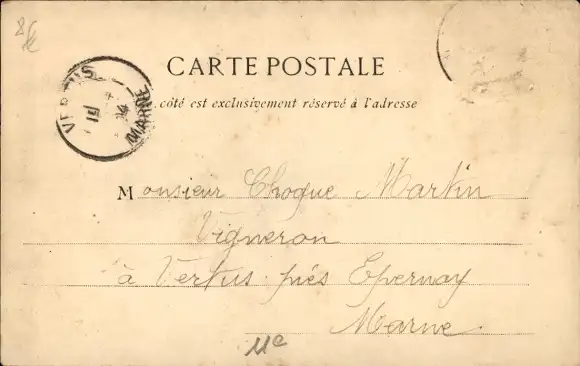 8€
CARTE POSTALE
côté est exclusivement réservé à l'adresse
VERTUS
MARNE
Monsieur Choque Martin
Vigneron
à Vertus près Epernay
Marne